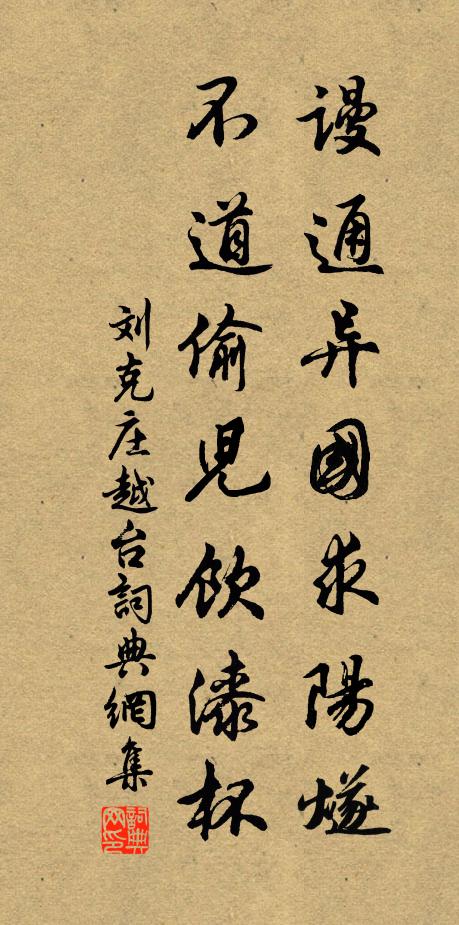 謾通异國求陽燧
不道偷兒飲漆杯
刘克庄越台詞典網集
詞典網印